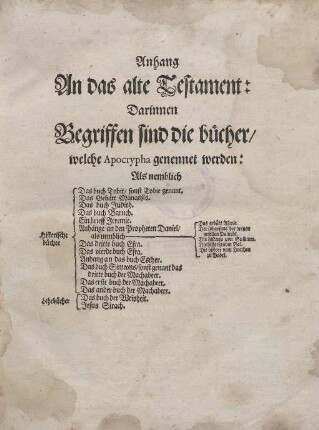 Anhang
An das alte Testament:
Darinnen
Begriffen sind die bücher/
welche Apocrypha genennet werden:
Als nemblich
Historische
bücher
Das buch Tobit/ sonst Tobie genant.
Das Gebätt Manasses.
Das buch Judith.
Das buch Baruch.
Ein brieff Jeremie.
Anhänge an den Propheten Daniel/
als nemblich
Das gebätt Asarie.
Der dreyen
Die histori von Susanna.
Die histori vom Bel.
Die histori vom Drachen
zu Babel.
Das dritte buch Esra.
Das vierde buch Esra.
Anhang an das buch Esther.
Das buch Simeons/ sonst genant das
dritte buch der Machabeer.
Das erste buch der Machabeer.
Das ander buch der Machabeer.
Lehrbücher
Das buch der Weißheit.
Jesus Sirach.